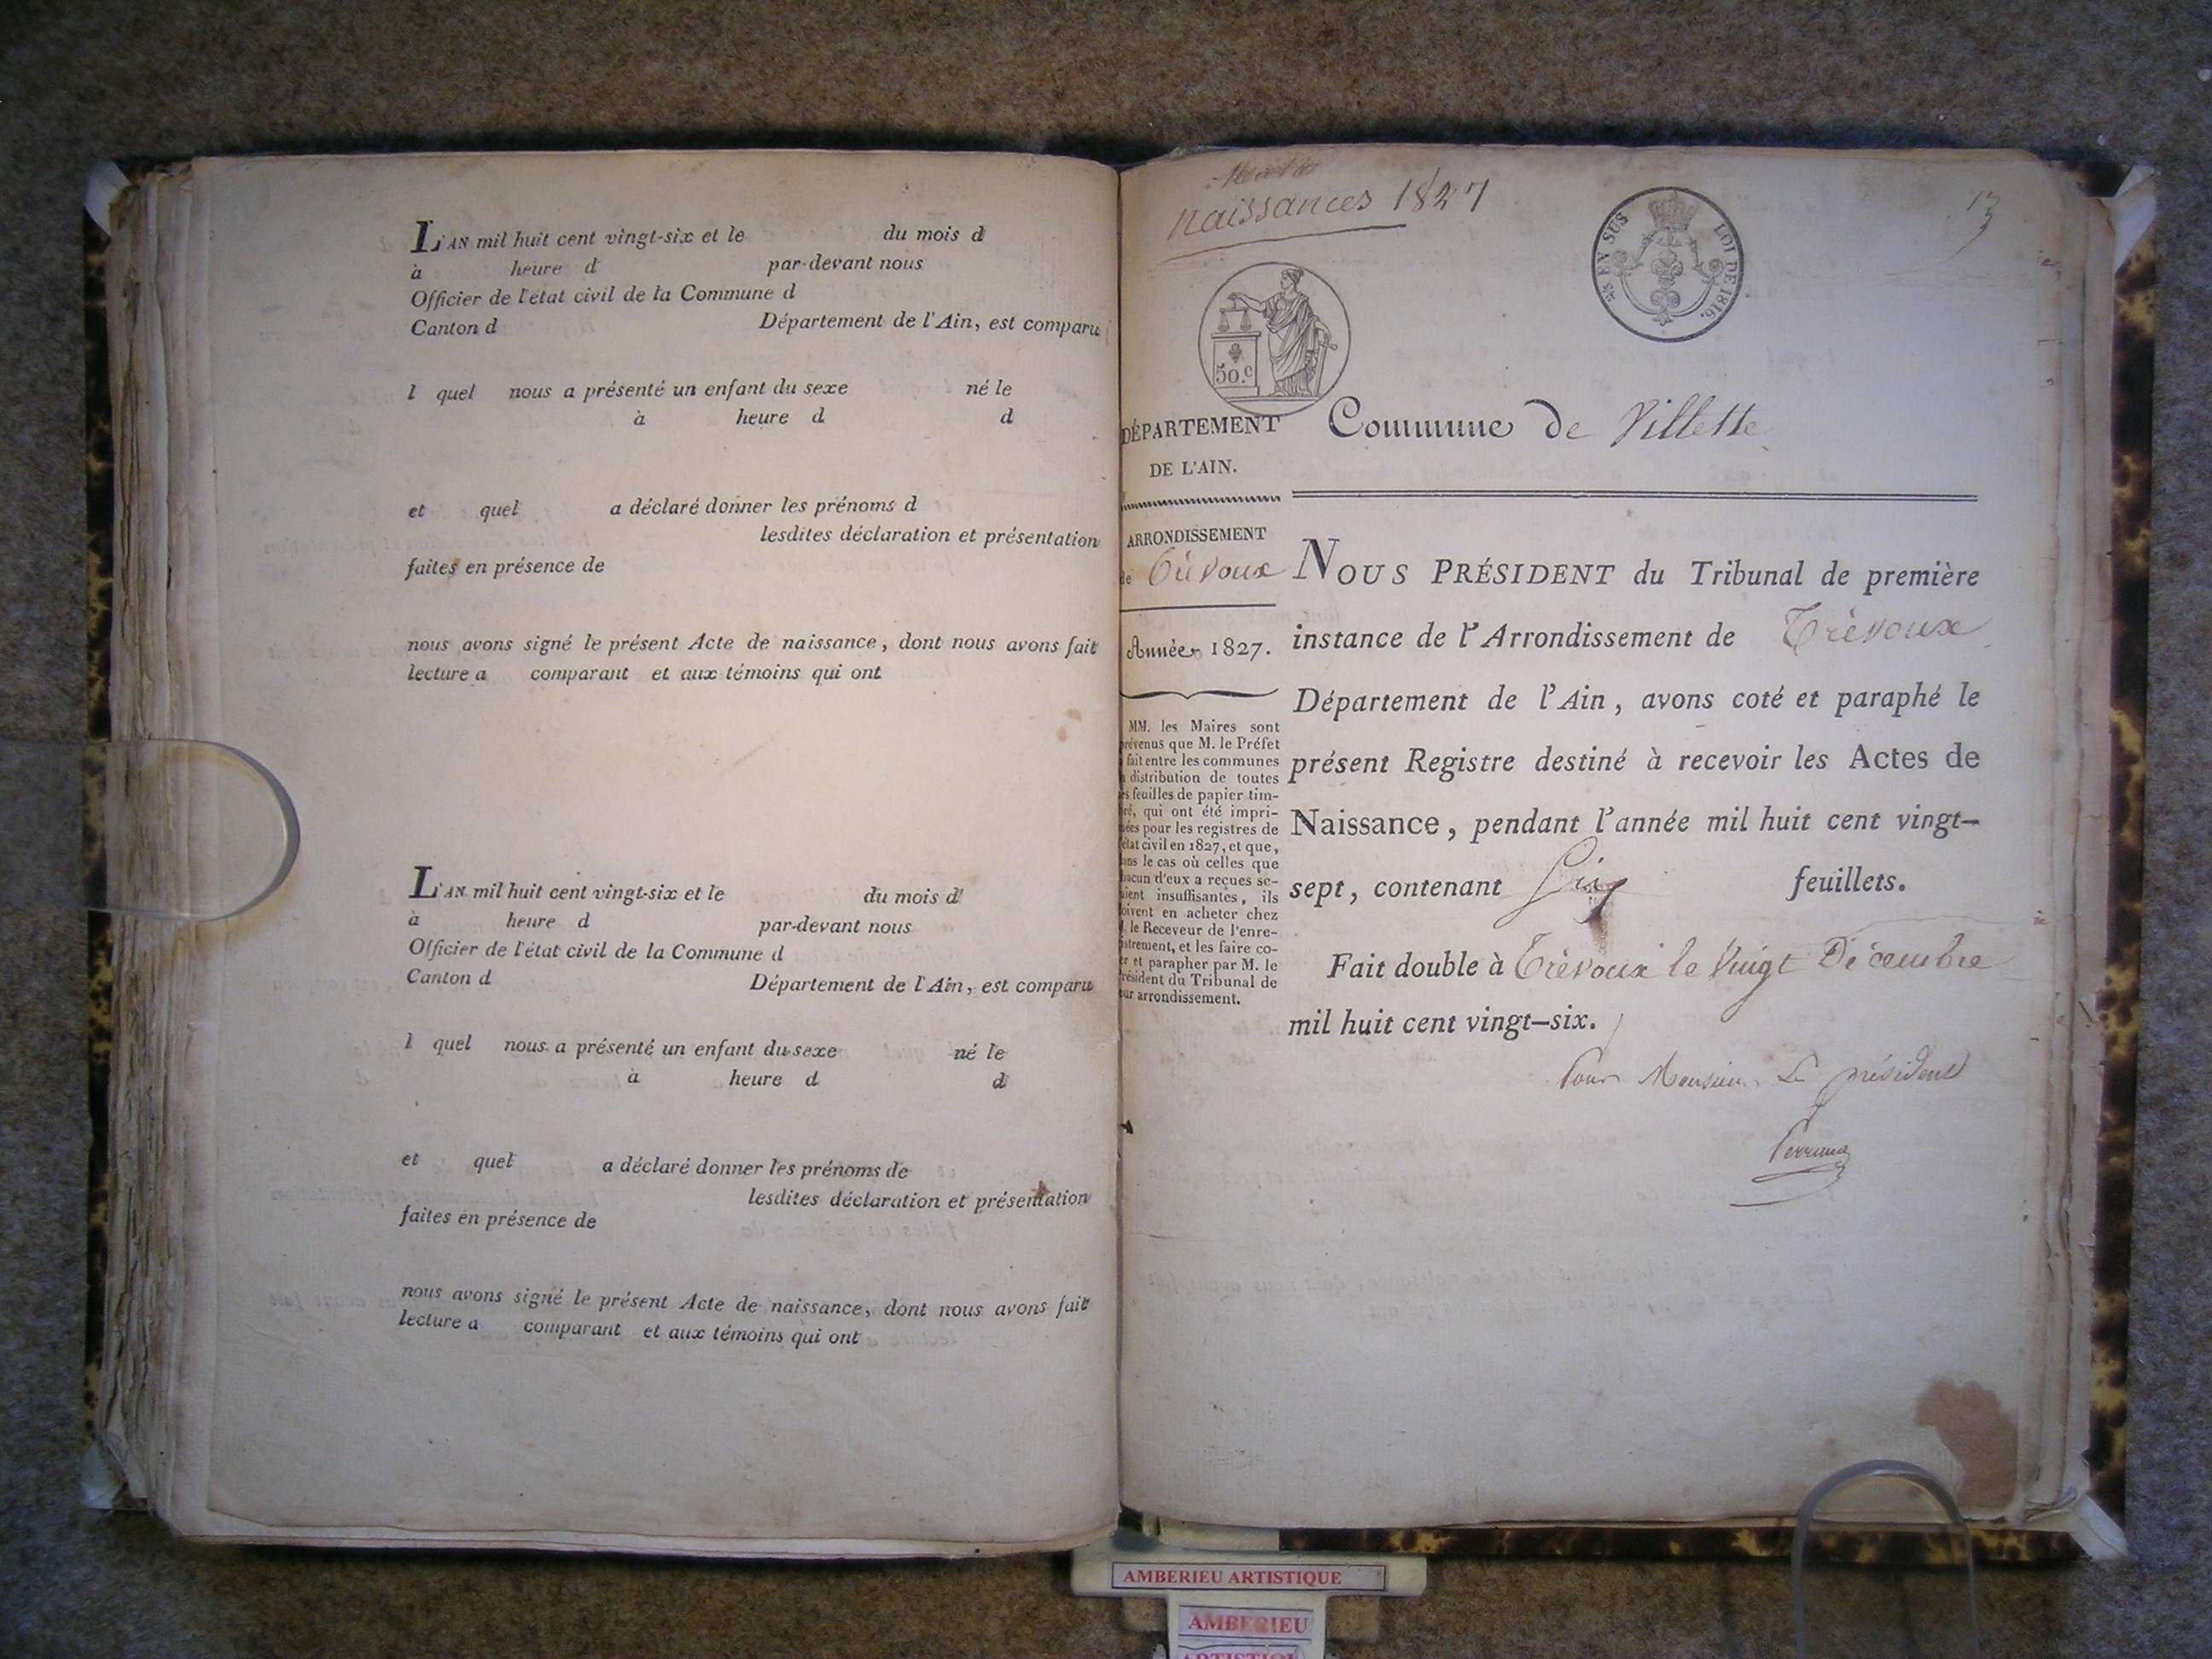 L'AN mil huit cent vingt-six et le du mois d
à heure d par-devant nous
Officier de l'état civil de la Commune d
Canton d Département de l'Ain, est comparu
l quel nous a présenté un enfant du sexe né le
à heure d d
et quel a déclaré donner les prénoms d
lesdites déclaration et présentation
faites en présence de
nous avons signé le présent Acte de naissance, dont nous avons fait
lecture a comparant et aux témoins qui ont
L'AN mil huit cent vingt-six et le du mois d
à heure d par-devant nous
Officier de l'état civil de la Commune d
Canton d Département de l'Ain, est comparu
l quel nous a présenté un enfant du sexe né le
à heure d d
et quel a déclaré donner les prénoms de
lesdites déclaration et présentation
faites en présence de
nous avons signé le présent Acte de naissance, dont nous avons fait
lecture a comparant et aux témoins qui ont
Naissances 1827
EN SUS LOI DE 1816.
13
50.c
DÉPARTEMENT
DE L'AIN.
Commune de Villette
ARRONDISSEMENT
de Trévoux
Année 1827.
MM. les Maires sont
prévenus que M. le Préfet
fait entre les communes
distribution de toutes
feuilles de papier tim-
bré, qui ont été impri-
mées pour les registres de
état civil en 1827, et que,
dans le cas où celles que
chacun d'eux a reçues se-
raient insuffisantes, ils
doivent en acheter chez
M. le Receveur de l'enre-
gistrement, et les faire co-
ter et parapher par M. le
Président du Tribunal de
leur arrondissement.
NOUS PRÉSIDENT du Tribunal de première
instance de l'Arrondissement de Trévoux
Département de l'Ain, avons coté et paraphé le
présent Registre destiné à recevoir les Actes de
Naissance, pendant l'année mil huit cent vingt-
sept, contenant feuillets.
Fait double à Trévoux le Vingt Décembre
mil huit cent vingt-six.
Pour Monsieur Le président
AMBERIEU ARTISTIQUE
AMBERIEU
ARTISTIQUE